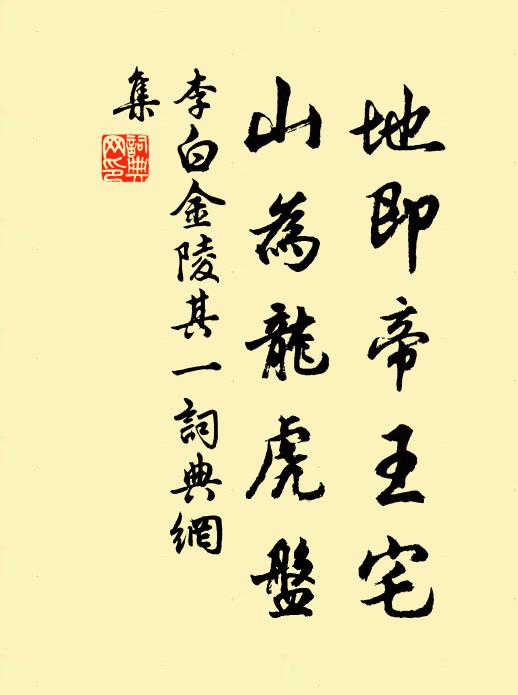 地即帝王宅
山為龍虎盤
李白金陵其一詞典網
集
詞典
网印